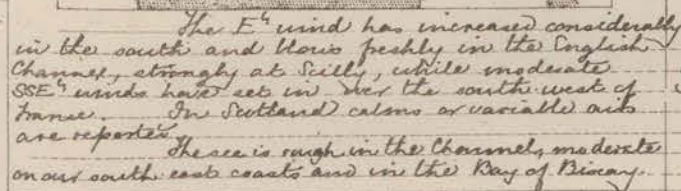 The Ely wind has increased considerably
in the south and blows freshly in the English
Channel, strongly at Scilly, while moderate
SSEly winds have set in over the south west of
France. In Scotland calms or variable airs
are reported.
The sea is rough in the Channel, moderate
on our south east coasts and in the Bay of Biscay.